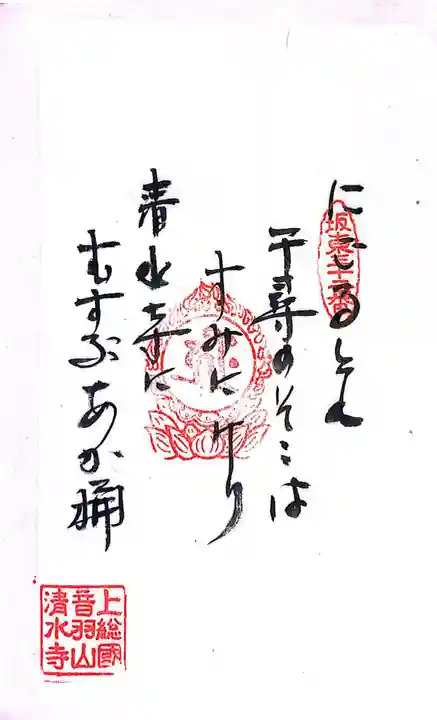 坂東三十二番
にごるとも
千尋のそこは
すみにけり
清水寺に
むすぶあか桶
上総國
音羽山
清水寺